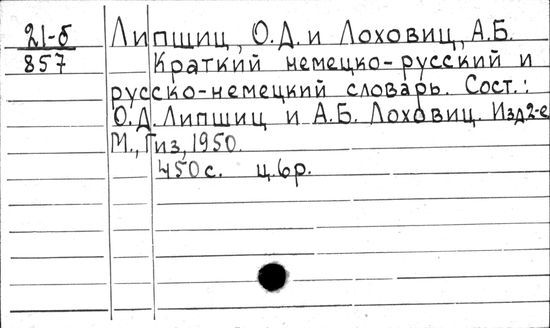 21-б Липшиц, О.Д. и Лоховиц, А.Б.
857 Краткий немецко-русский и
русско-немецкий словарь. Сост.:
О.Д. Липшиц и А.Б. Лоховиц. Изд 2-е
М., Гиз, 1950.
450 с. ц. 6 р.